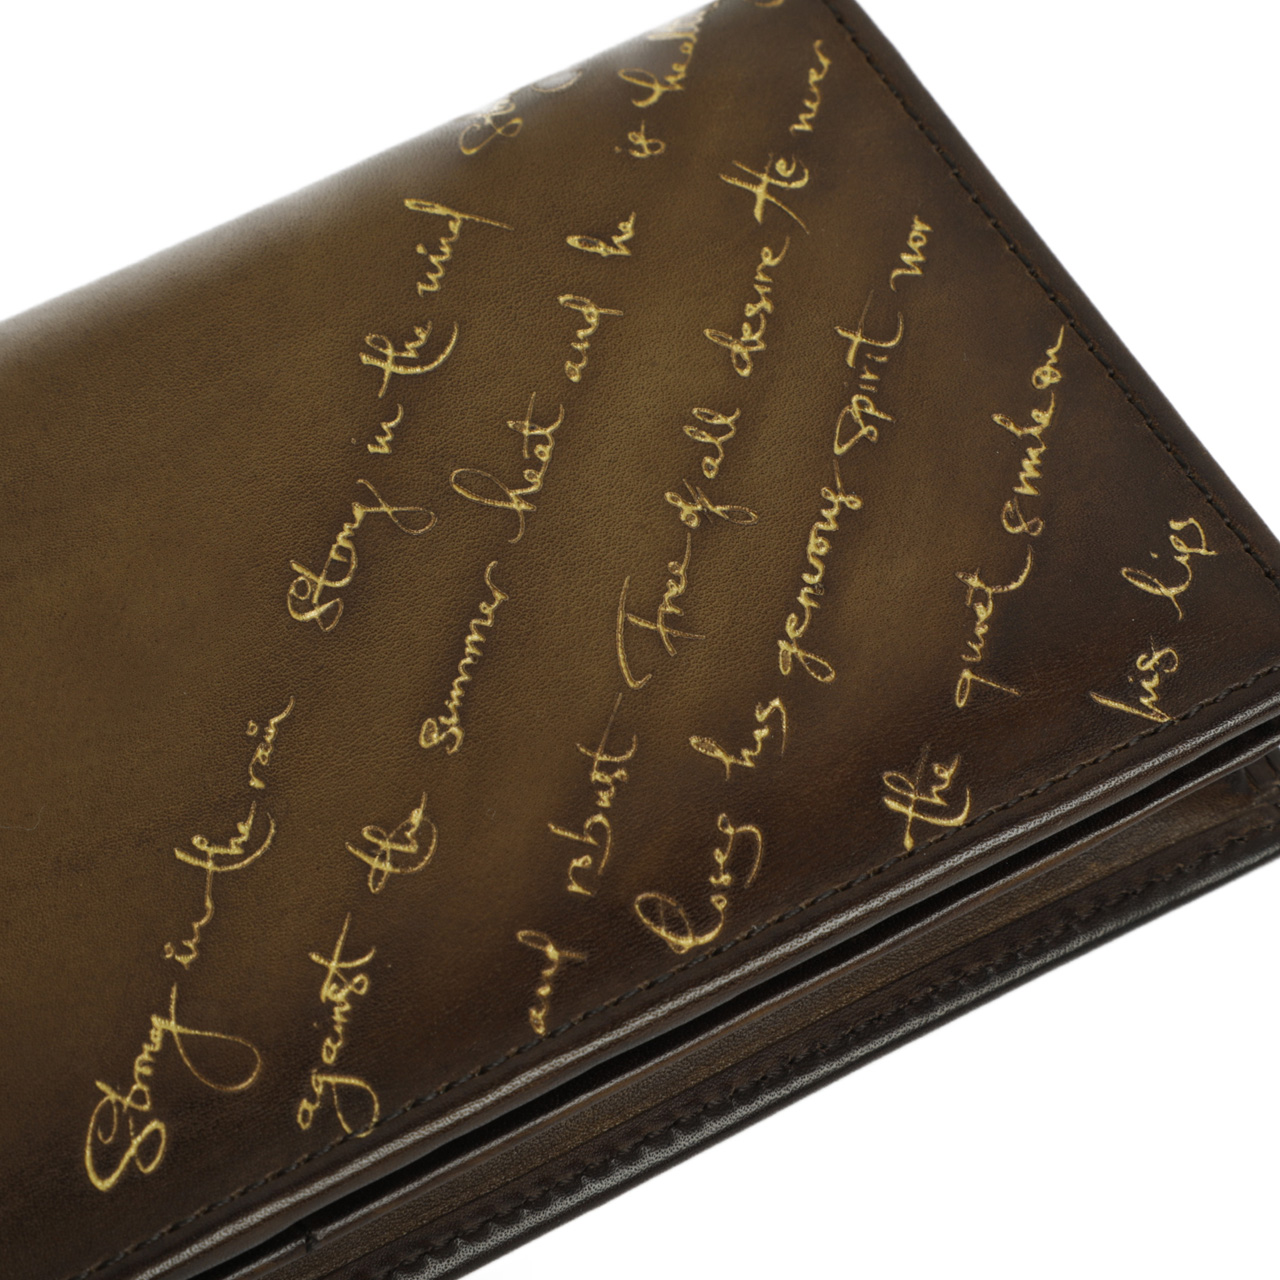 Strong in the rain Strong in the wind
against the summer heat and he is
and robust Free of all desire He never
loses his generous spirit nor
the quiet smile on
his lips